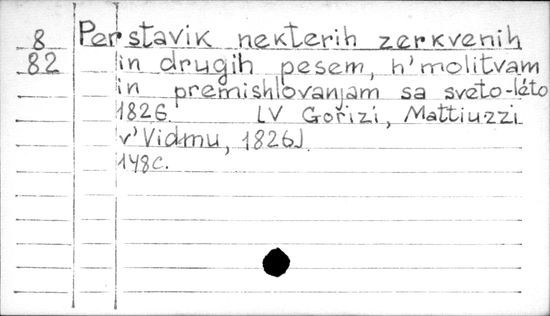 8 Perstavik nekterih zerkvenih
82 in drugih pesem, h'molitvam
in premishlovanjam sa sveto-léto
1826. [V Gořizi, Mattiuzzi
v'Vidmu, 1826].
148c.